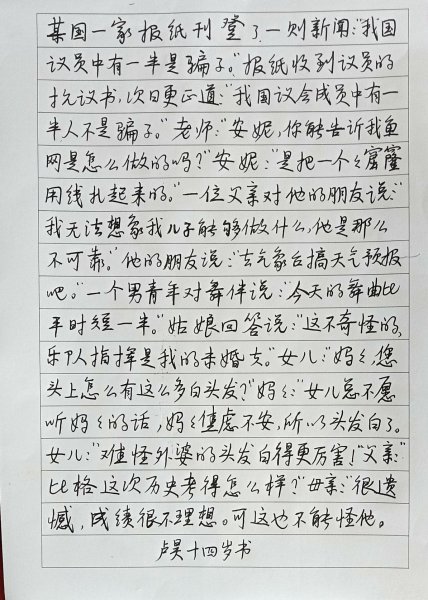 某国一家报纸刊登了一则新闻:"我国
议员中有一半是骗子。"报纸收到议员的
抗议书,次日更正道:"我国议会成员中有一
半人不是骗子。"老师:"安妮,你能告诉我鱼
网是怎么做的吗?"安妮:"是把一个々窟窿
用线扎起来的。"一位父亲对他的朋友说:"
我无法想象我儿子能够做什么,他是那么
不可靠。"他的朋友说:"去气象台搞天气预报
吧。"一个男青年对舞伴说:"今天的舞曲比
平时短一半。"姑娘回答说:"这不奇怪的,
乐队指挥是我的未婚夫。"女儿:"妈々,您
头上怎么有这么多白头发?"妈々:"女儿总不愿
听妈々的话,妈々焦虑不安,所以头发白了。
女儿:"难怪外婆的头发白得更厉害!"父亲:"
比格这次历史考得怎么样?"母亲:"很遗
憾,成绩很不理想。可这也不能怪他。
卢昊十四岁书